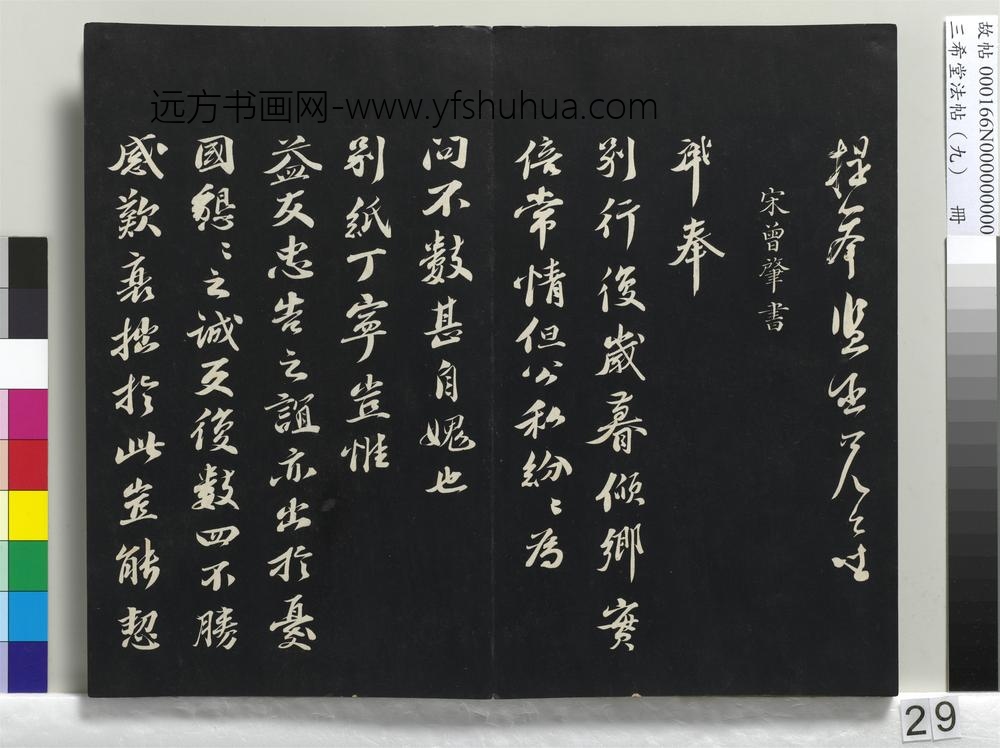 远方书画网-www.yfshuhua.com
故帖 000166N000000000
三希堂法帖（九） 冊
提舉
宋曾肇書
肇奉
別行後歲暮傾鄉實
倍常情但公私紛〻為
問不數甚自媿也
別紙丁寧豈惟
益友忠告之誼亦出於憂
國懇〻之誠反復數四不勝
感歎衰拙於此豈能
29